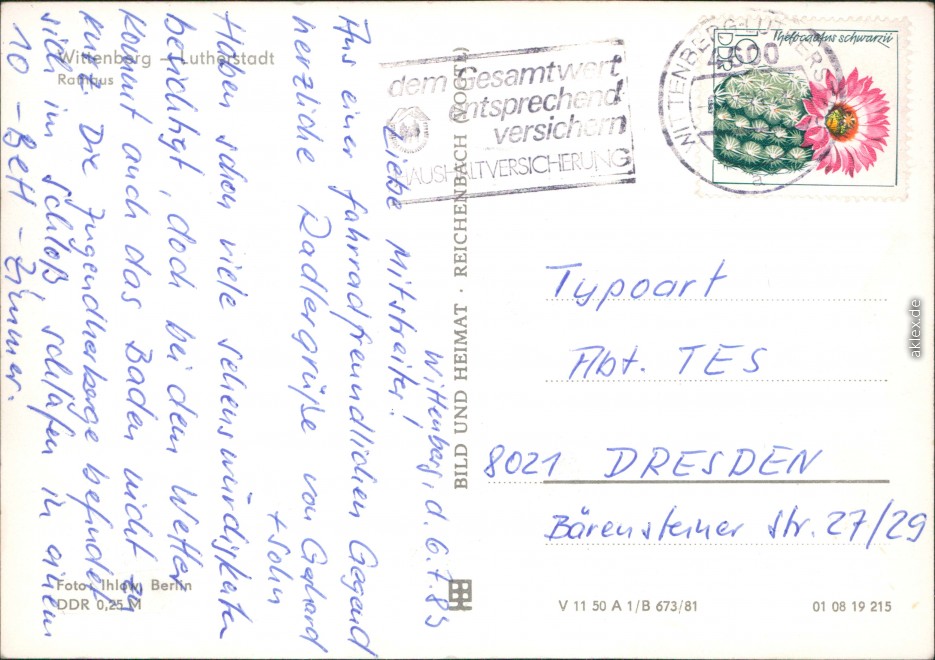 Wittenberg – Lutherstadt
Rathaus
Wittenberg, d. 6.7.83
Liebe Mitstreiter!
Aus einer fahrradfreundlichen Gegend
herzliche Radlergrüße von Gerhard
+ Sohn
Haben schon viele sehenswürdigkeiten
besichtigt, doch bei dem Wetter
kommt auch das Baden nicht zu
kurz. Die Jugendherberge befindet
sich im Schloß, schlafen in einem
10-Bett-Zimmer.
Foto: Ihlow, Berlin
DDR 0,25 M
BILD UND HEIMAT · REICHENBACH (VOGTL)
dem Gesamtwert
entsprechend
versichern
HAUSHALTVERSICHERUNG
WITTENBERG LUTHERS
4600
a
Thelocactus schwarzii
DDR
Typoart
Abt. TES
8021 DRESDEN
Bärensteiner Str. 27/29
V 11 50 A 1/B 673/81
01 08 19 215
aklex.de